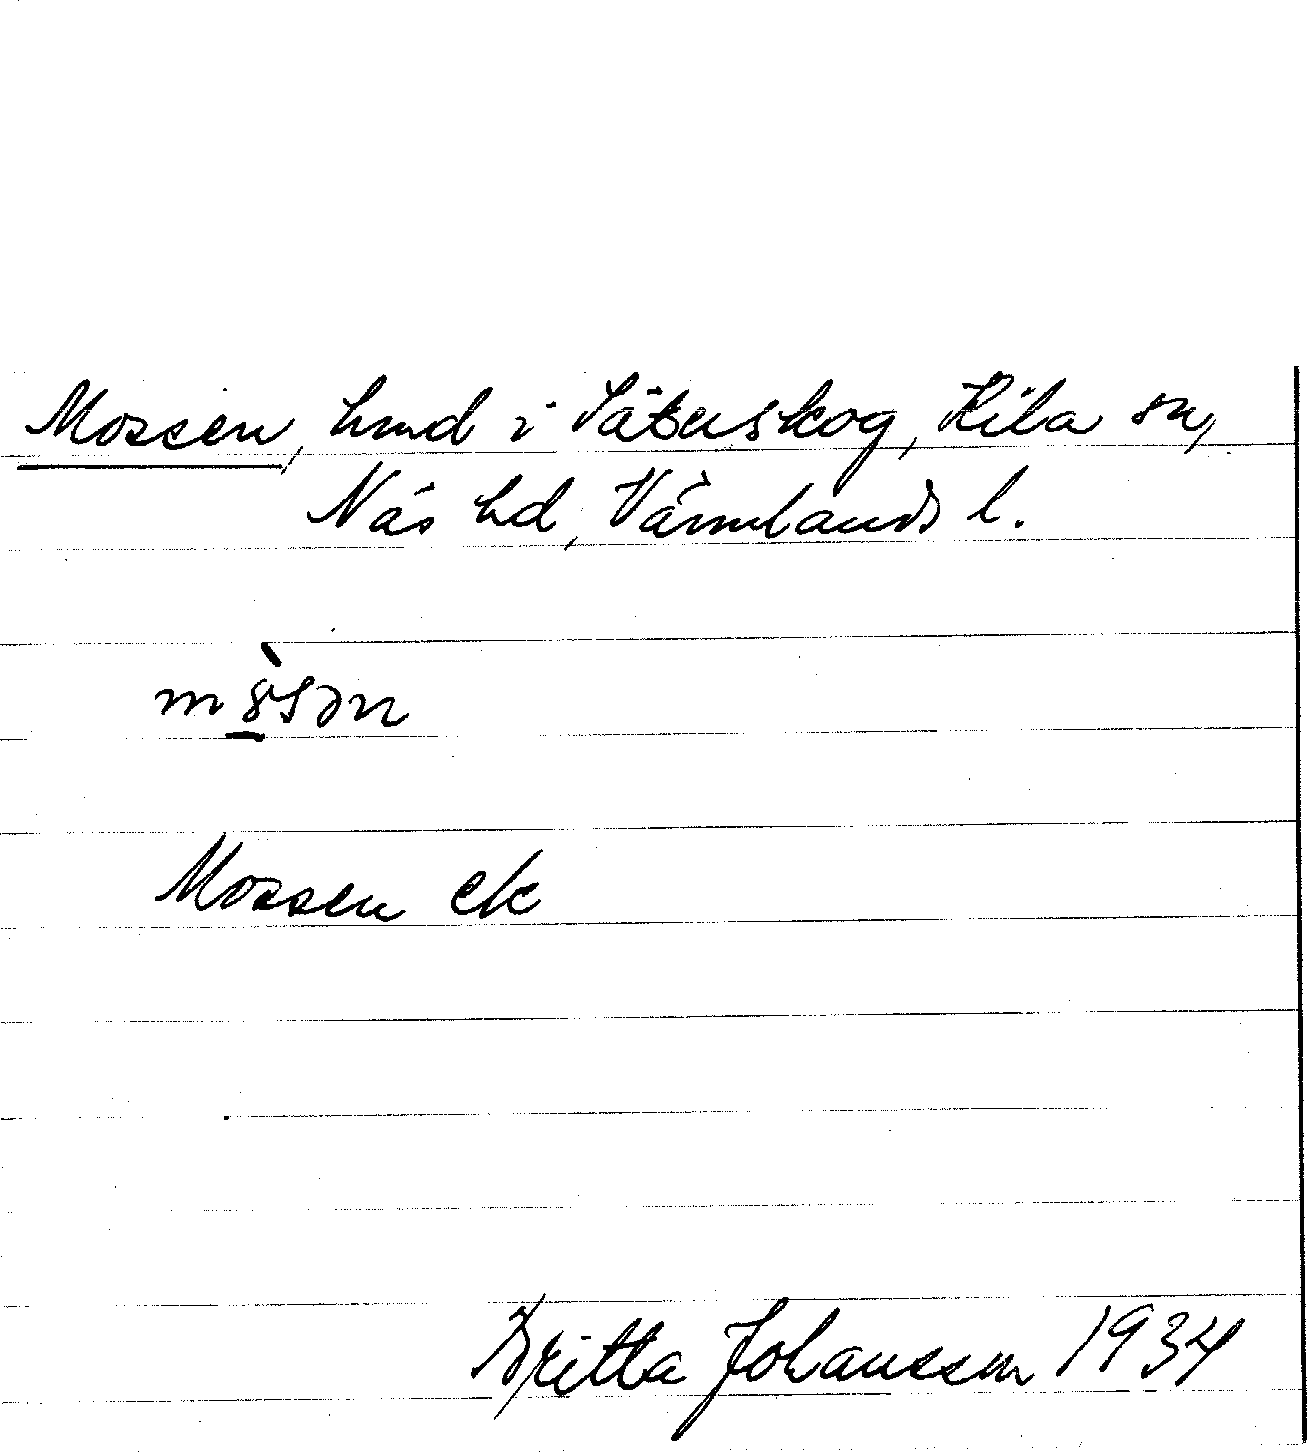 Mossen, hmd i Säterskog, Kila sn,
Näs hd, Värmlands l.
mo̱̍sən
Mossen ek
Britta Johansson 1934